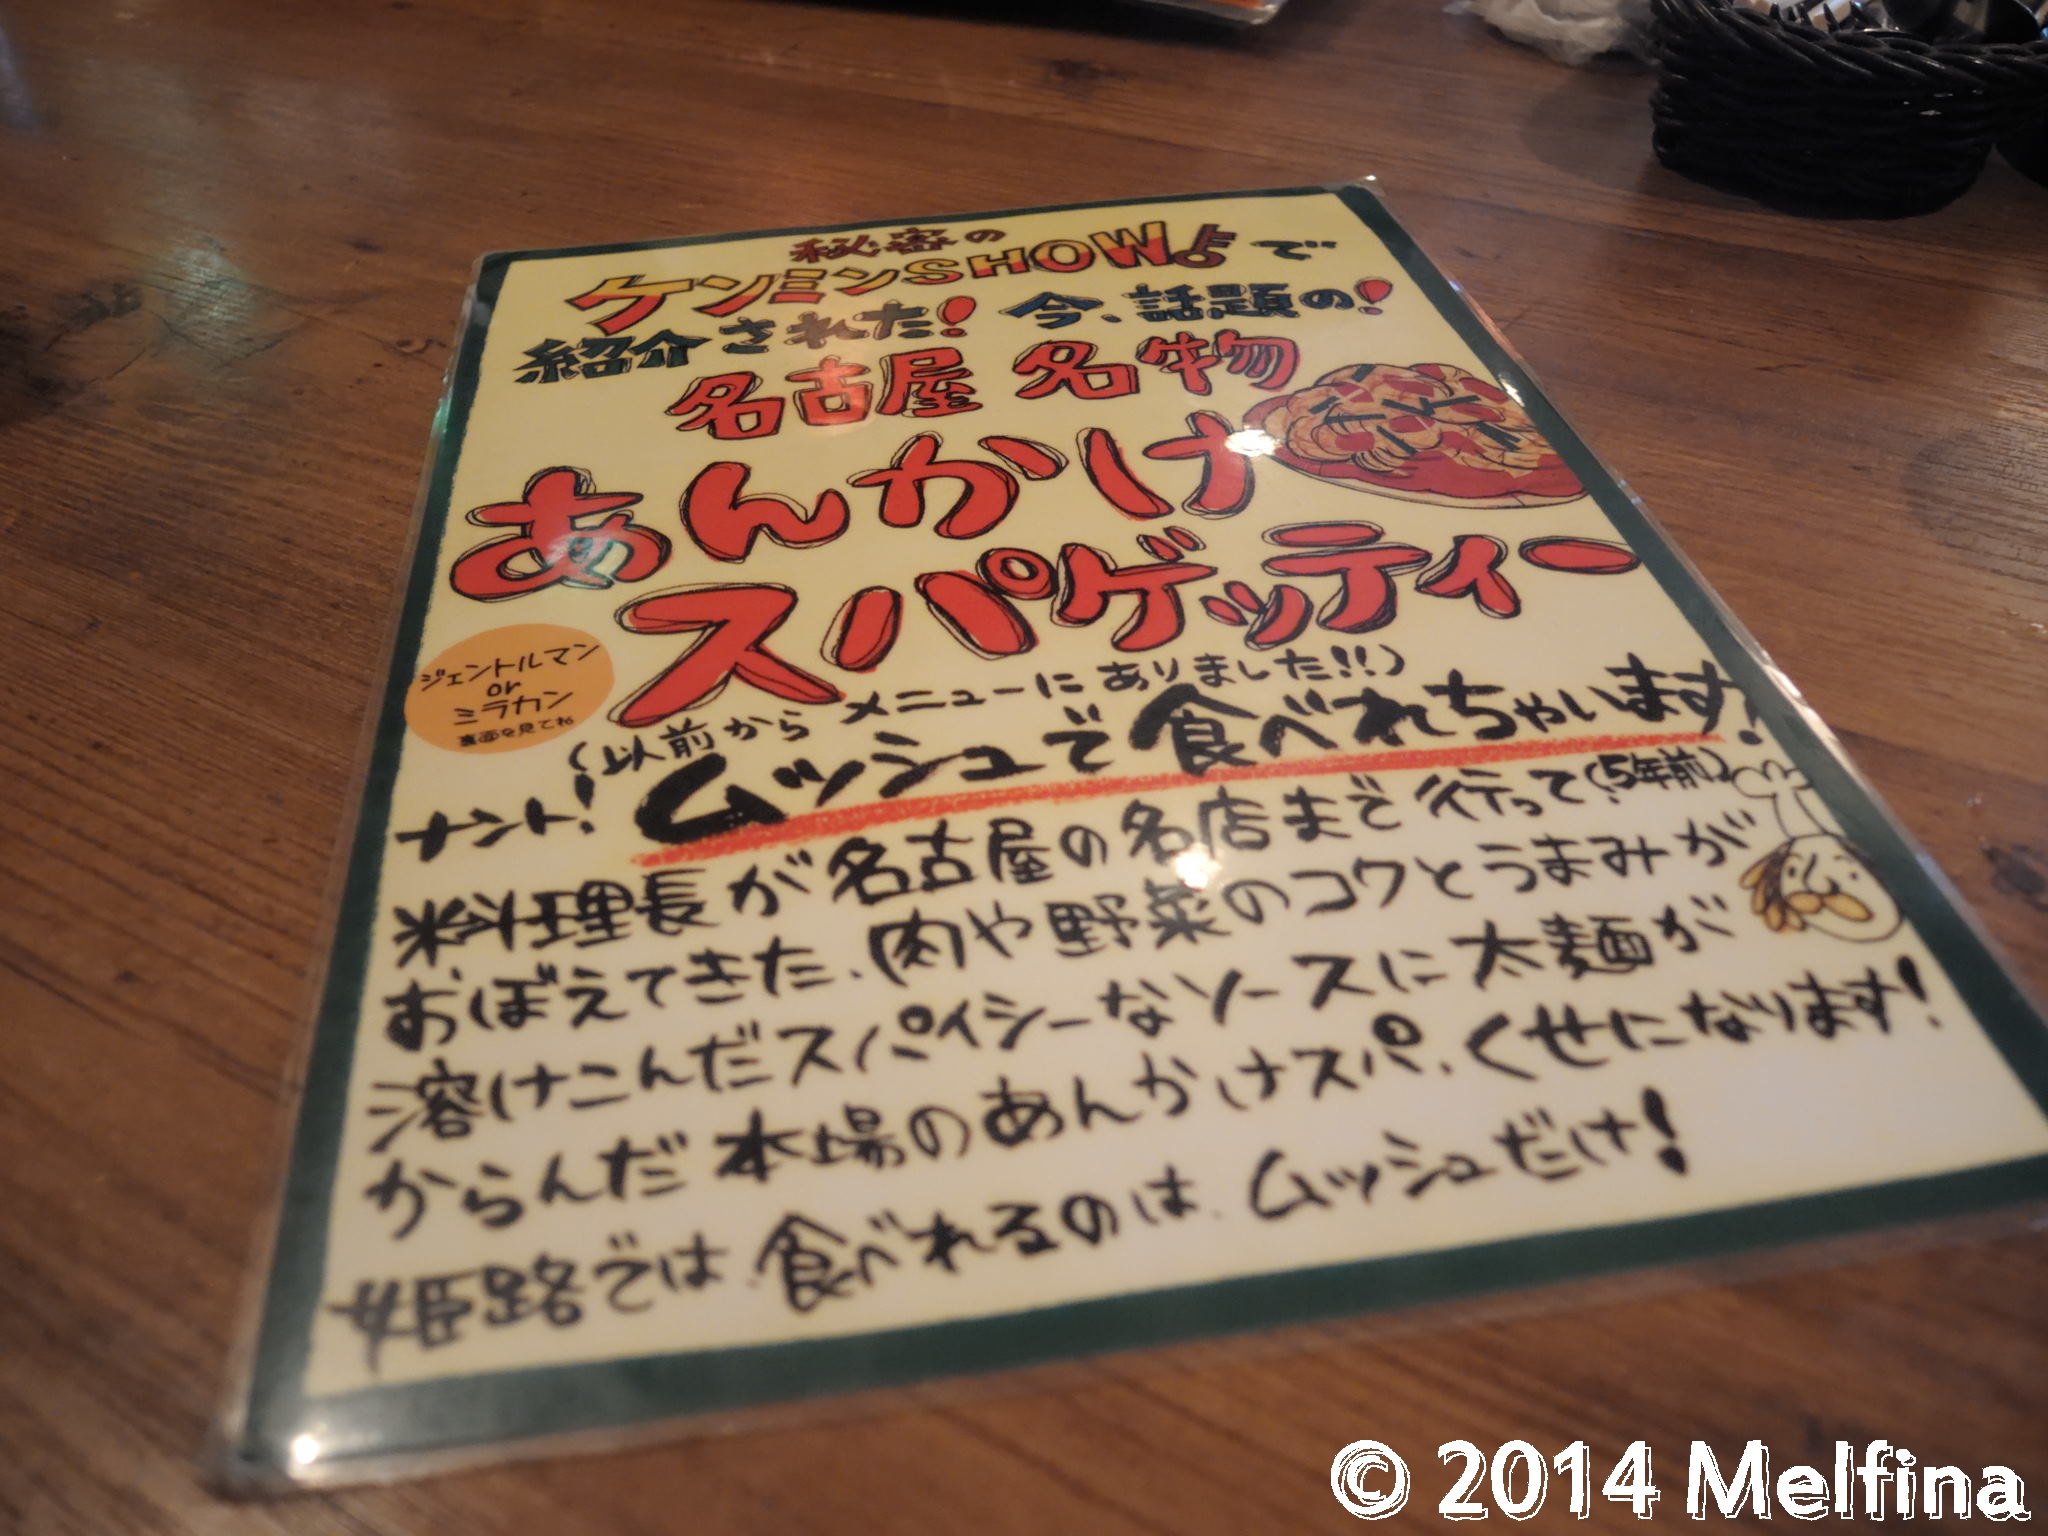 秘密の
ケンミンSHOW!で
紹介された! 今、話題の!
名古屋 名物
あんかけ
スパゲッティー
ジェントルマン
or
ミラカン
裏面を見てね
(以前から メニューに ありました!!)
ナント! ムッシュで食べれちゃいます!
料理長が名古屋の名店まで行って(5年前)
おぼえてきた、肉や野菜のコクとうまみが
溶けこんだスパイシーなソースに太麺が
からんだ本場のあんかけスパ、くせになります!
姫路では、食べれるのは、ムッシュだけ!
© 2014 Melfina